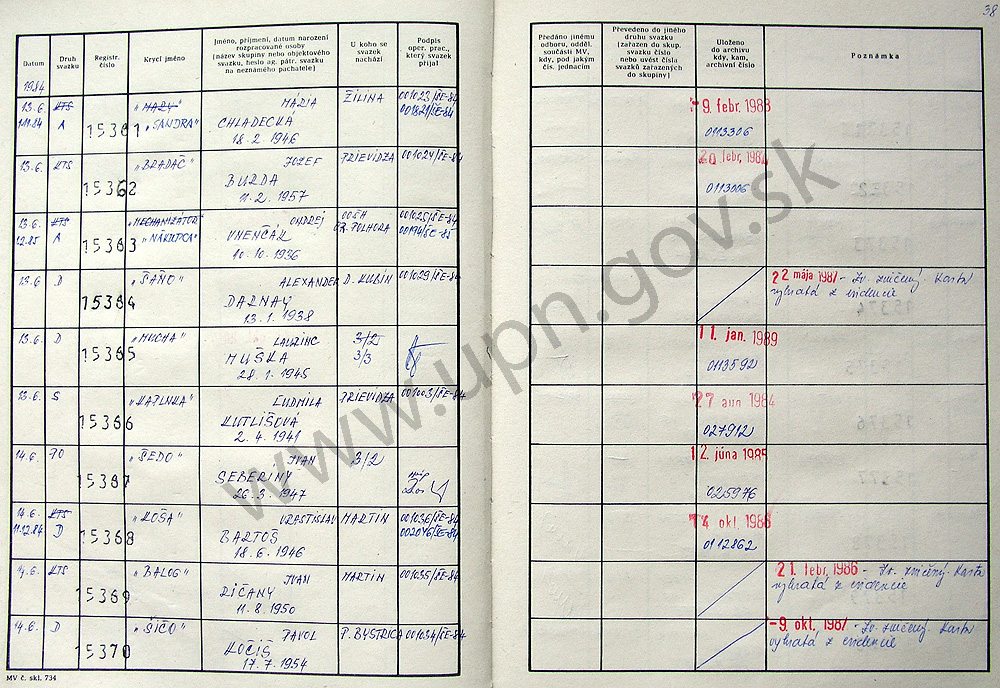 38
Datum
Druh svazku
Registr. číslo
Krycí jméno
Jméno, příjmení, datum narození rozpracované osoby (název skupiny nebo objektového svazku, heslo ag. pátr. svazku na neznámého pachatele)
U koho se svazek nachází
Podpis oper. prac., který svazek přijal
Předáno jinému odboru, odděl. součásti MV, kdy, pod jakým čís. jednacím
Převedeno do jiného druhu svazku (zařazen do skup. svazku číslo nebo uvést čísla svazků zařazených do skupiny)
Uloženo do archivu kdy, kam, archivní číslo
Poznámka
1984
13.6. KTS "MARY" MÁRIA ŽILINA 001023/ŠE-84 -9. febr. 1988
1.11.84 A 15361 "SANDRA" CHLADECKÁ 001821/ŠE-84 0113306
18.2.1946
13.6. KTS "BRADÁČ" JOZEF PRIEVIDZA 001024/ŠE-84 20 febr. 1984
15362 BURDA 0113006
11.2.1957
13.6. KTS "MECHANIZÁTOR" ONDREJ OOŠH 001025/ŠE-84
12.85 A 15363 "NÁKUPCA" VNENČÁK OR. POLHORA 00194/ŠE-85
10.10.1936
13.6 D "ŠAŇO" ALEXANDER D. KUBÍN 001029/ŠE-84 22 mája 1987 - Zv. zničený. Karta
15364 DARNAY vybratá z evidencie
13.1.1938
13.6. D "MUCHA" LAURINC 3/2 11. jan. 1989
15365 MUŠKA 3/3 0113592
28.1.1945
13.6. S "KATINKA" ĽUDMILA PRIEVIDZA 001003/ŠE-84 27 aug 1984
15366 KUTLIŠOVÁ 027912
2.4.1941
14.6. PO "ŠEDO" IVAN 3/2 12. júna 1985
15367 SEBERINY 025976
26.3.1947
14.6. KTS "KOŠA" VRASTISLAV MARTIN 001036/ŠE-84 14 okt. 1986
11.12.84 D 15368 BARTOŠ 002046/ŠE-84 0112862
18.6.1946
14.6. KTS "BALOG" IVAN MARTIN 001035/ŠE-84 21. febr. 1986 - Zv. zničený. Karta
15369 RÍČANY vybratá z evidencie
11.8.1950
14.6. D "ŠIČO" PAVOL P. BYSTRICA 001034/ŠE-84 -9. okt. 1987 - Zv. zničený. Karta
15370 KOČIŠ vybratá z evidencie
17.7.1954
MV č. skl. 734
www.upn.gov.sk